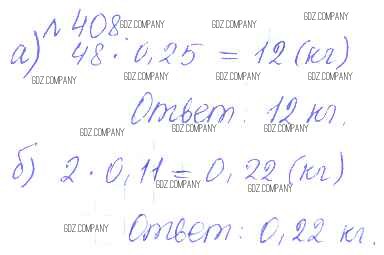 № 408.
GDZ.COMPANY GDZ.COMPANY GDZ.COMPANY
а) 48 · 0,25 = 12 (кг)
GDZ.COMPANY GDZ.COMPANY GDZ.COMPANY GDZ.COMPANY
Ответ: 12 кг.
GDZ.COMPANY GDZ.COMPANY GDZ.COMPANY
б) 2 · 0,11 = 0,22 (кг)
GDZ.COMPANY GDZ.COMPANY
Ответ: 0,22 кг.
GDZ.COMPANY GDZ.COMPANY GDZ.COMPANY